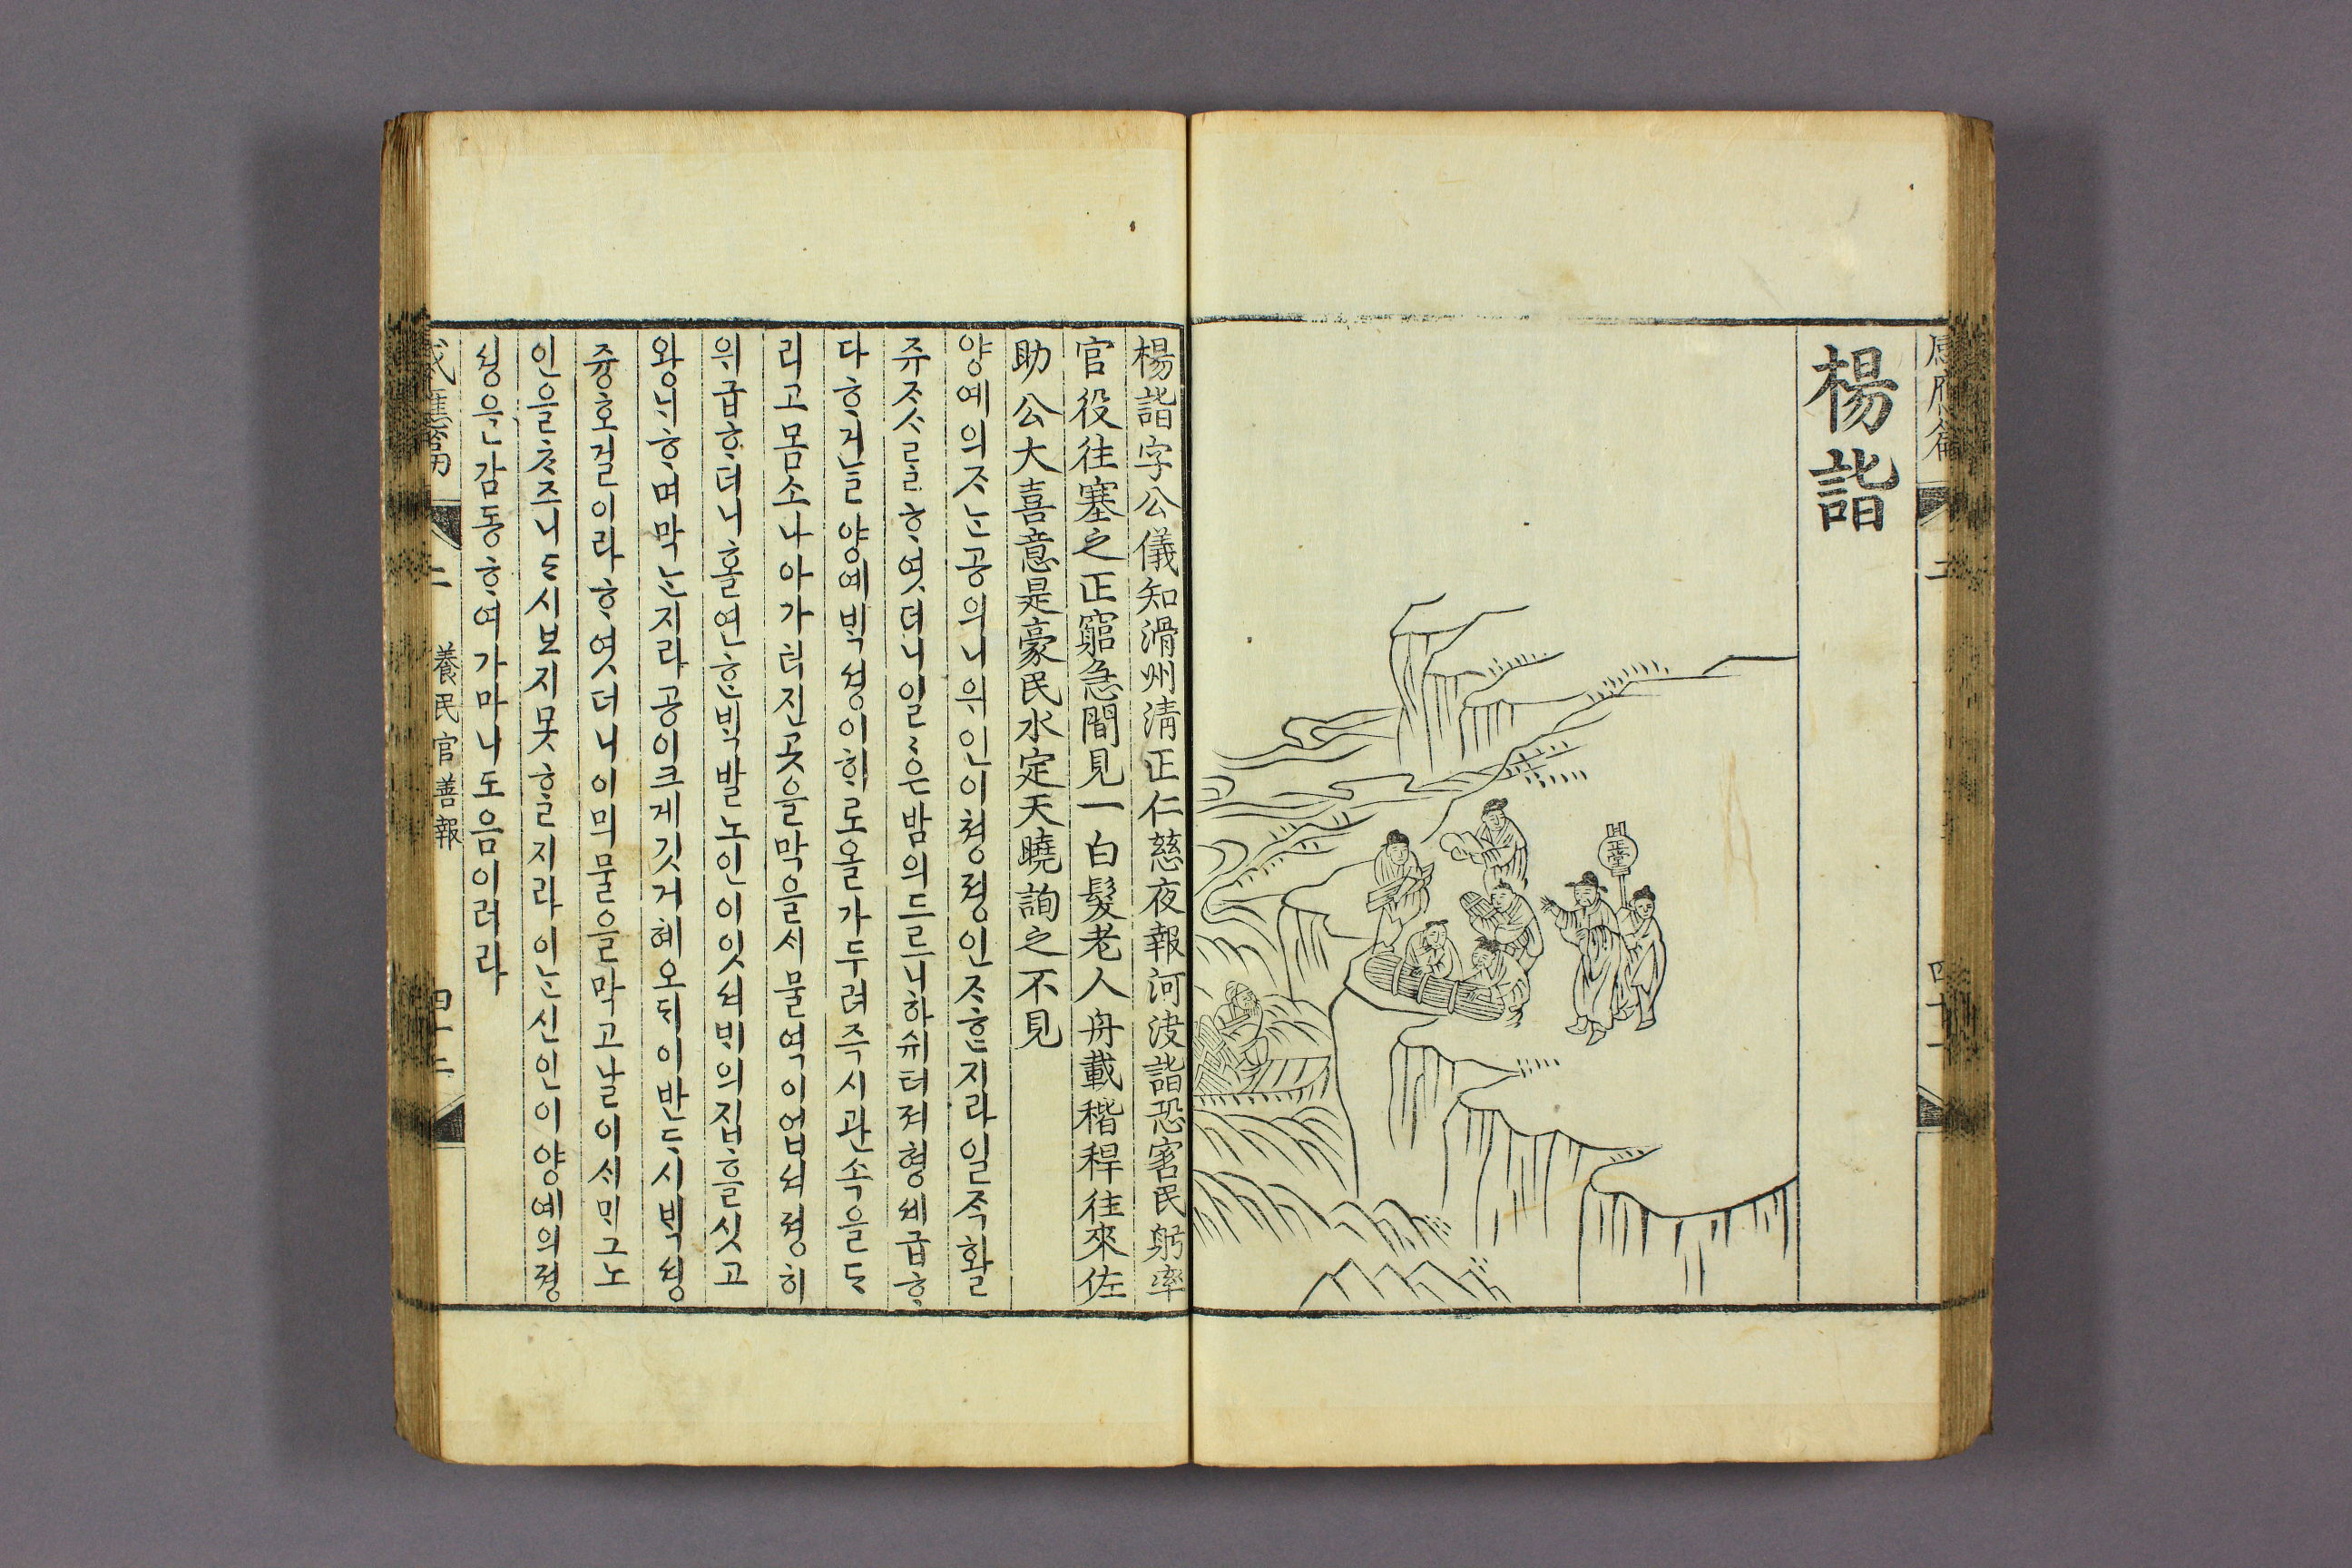 感應篇 二 四十一
楊詣
正堂
楊詣字公儀知滑州淸正仁慈夜報河決詣恐害民躬率
官役往塞之正窮急間見一白髮老人舟載稭稈往來佐
助公大喜意是豪民水定天曉詢之不見
양예의ᄌᆞᄂᆞᆫ공의니위인이쳥졍인ᄌᆞᄒᆞᆫ지라일즉활
쥬ᄌᆞᄉᆞᄅᆞᆯᄒᆞ엿더니일〻은밤의드르니하쉬터져형셰급ᄒᆞ
다ᄒᆞ거ᄂᆞᆯ양예ᄇᆡᆨ셩이ᄒᆡ로올가두려즉시관쇽을ᄃᆞ
리고몸소나아가터진곳을막을ᄉᆡ물역이업셔졍히
위급ᄒᆞ더니홀연ᄒᆞᆫᄇᆡᆨ발노인이잇셔ᄇᆡ의집흘싯고
왕ᄂᆡᄒᆞ며막ᄂᆞᆫ지라공이크게깃거혜오ᄃᆡ이반ᄃᆞ시ᄇᆡᆨ셩
즁호걸이라ᄒᆞ엿더니이믜물을막고날이ᄉᆡᄆᆡ그노
인을ᄎᆞᄌᆞ니ᄃᆞ시보지못ᄒᆞᆯ지라이ᄂᆞᆫ신인이양예의졍
셩을감동ᄒᆞ여가마니도음이러라
感應篇 二 養民官善報 四十二